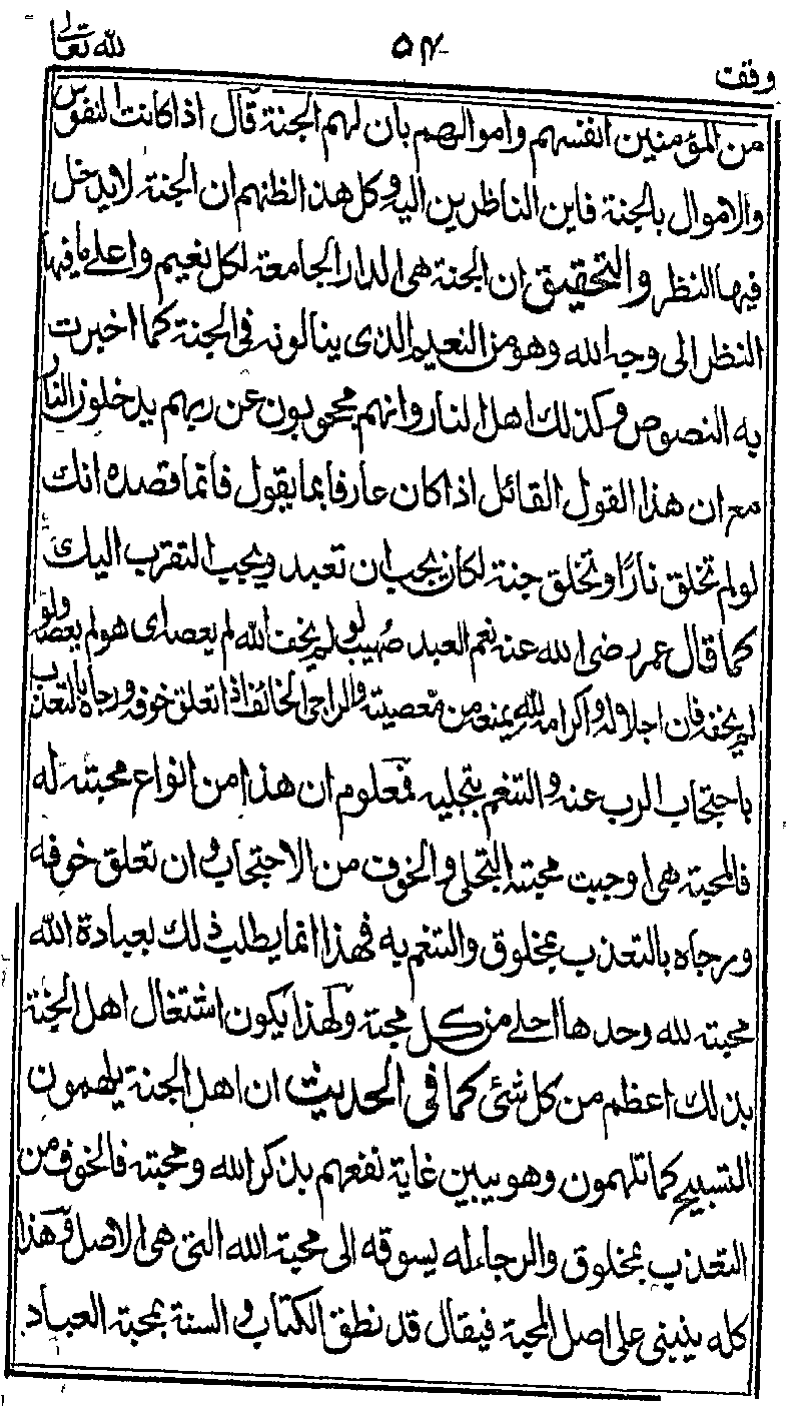 وقف
٥٤
لله تعالى
من المؤمنين انفسهم واموالهم بان لهم الجنة قال اذا كانت النفوس
والاموال بالجنة فاين الناظرين اليه وكل هذا لظنهم ان الجنة لا يدخل
فيها النظر والتحقيق ان الجنة هى الدار الجامعة لكل نعيم واعلى ما فيها
النظر الى وجه الله وهو من النعيم الذى ينالونه فى الجنة كما اخبرت
به النصوص وكذلك اهل النار وانهم محجوبون عن ربهم يدخلون النار
مع ان هذا القول القائل اذا كان عارفا بما يقول فانما قصده انك
لو لم تخلق نارًا وتخلق جنة لكان يجب ان تعبد ويجب التقرب اليك
كما قال عمر رضى الله عنه نعم العبد صهيب لو لم يخف الله لم يعصه اى هو لم يعصه ولو
لم يخفه فان اجلاله واكرامه لله يمنعه من معصيته والراجى الخائف اذا تعلق خوفه ورجاه بالتعذب
باحتجاب الرب عنه والتنعم بتجليه فمعلوم ان هذا من انواع محبته له
فالمحبة هى اوجبت محبته التجلى والخوف من الاحتجاب وان تعلق خوفه
ورجاه بالتعذب بمخلوق والتنعم به فهذا انما يطلب ذلك بعبادة الله
محبته لله وحدها احلى من كل محبة ولهذا يكون اشتغال اهل الجنة
بذلك اعظم من كل شئ كما فى الحديث ان اهل الجنة يلهمون
التسبيح كما تلهمون وهو يبين غاية نفعهم بذكر الله ومحبته فالخوف من
التعذب بمخلوق والرجاء له يسوقه الى محبة الله التى هى الاصل وهذا
كله ينبنى على اصل المحبة فيقال قد نطق الكتاب والسنة بمحبة العباد